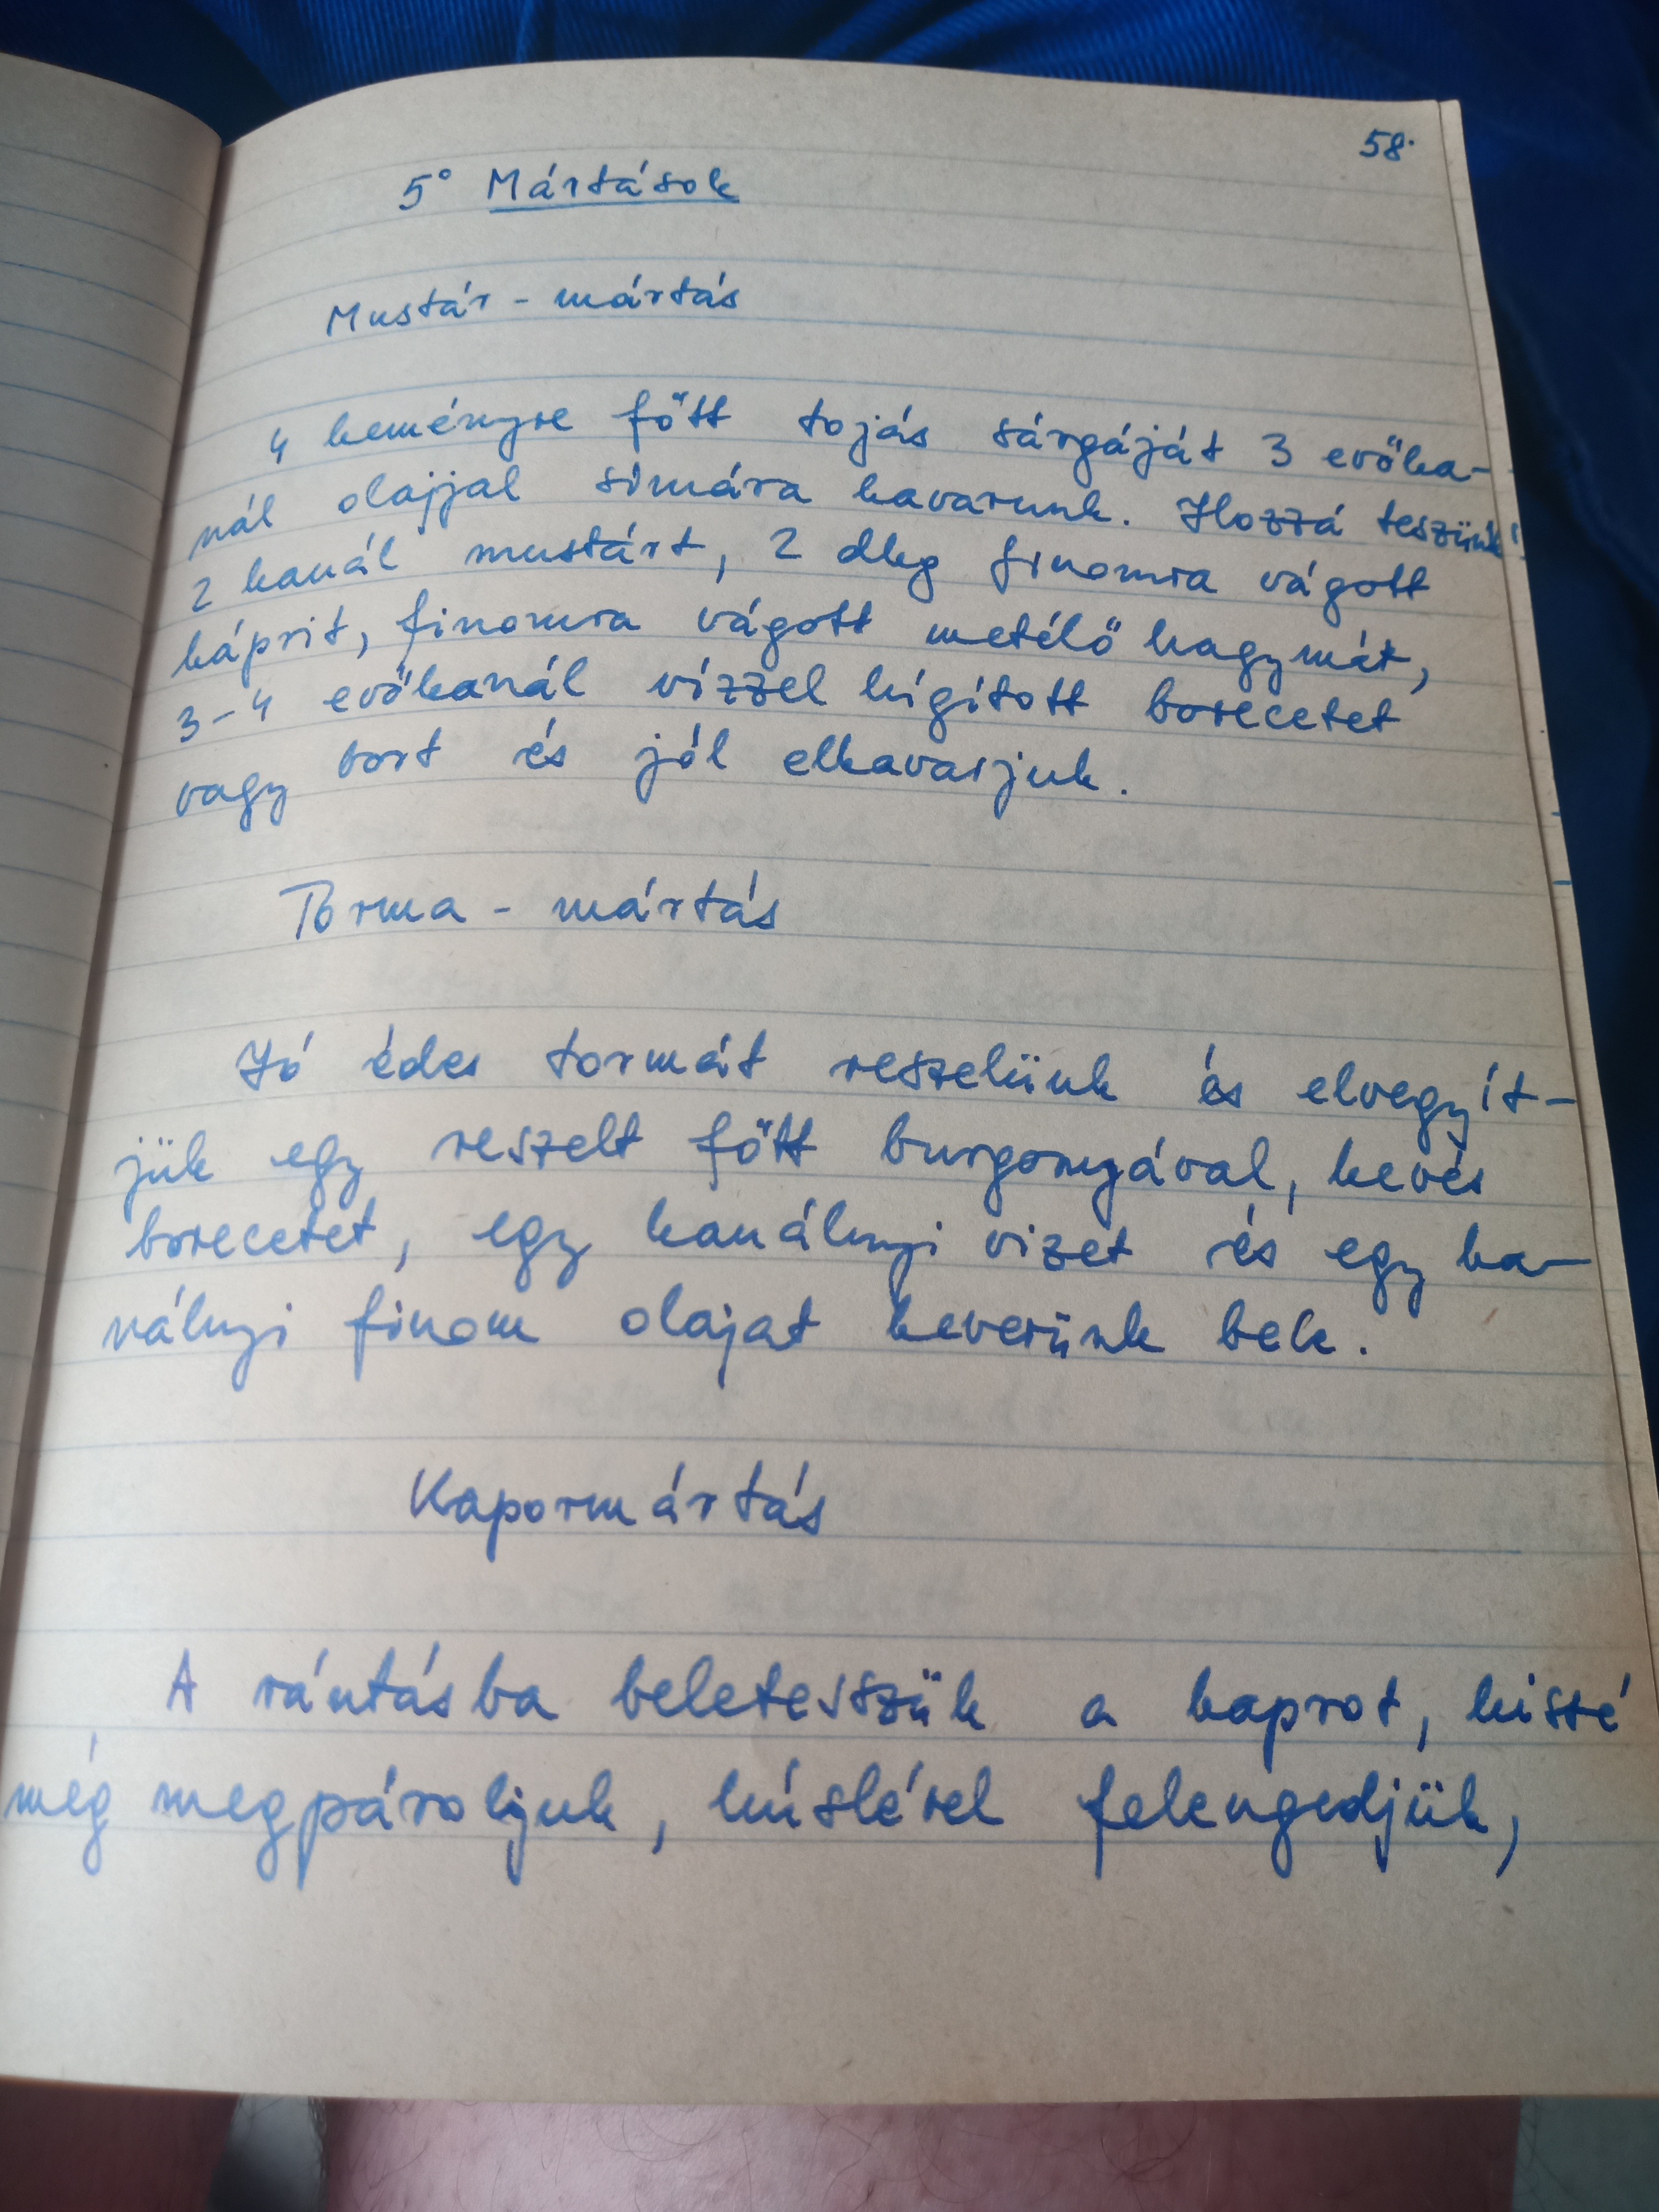 58.
5° Mártások
Mustár - mártás
4 keményre főtt tojás sárgáját 3 evőka-
nál olajjal simára kavarunk. Hozzá teszünk
2 kanál mustárt, 2 dkg finomra vágott
káprit, finomra vágott metélő hagymát,
3-4 evőkanál vízzel hígított borecetet
vagy bort és jól elkavarjuk.
Torma - mártás
Jó édes tormát reszelünk és elvegyít-
jük egy reszelt főtt burgonyával, kevés
borecetet, egy kanálnyi vizet és egy ka-
nálnyi finom olajat keverünk bele.
Kapormártás
A rántásba beletesszük a kaprot, kissé
még megpároljuk, húslével felengedjük,